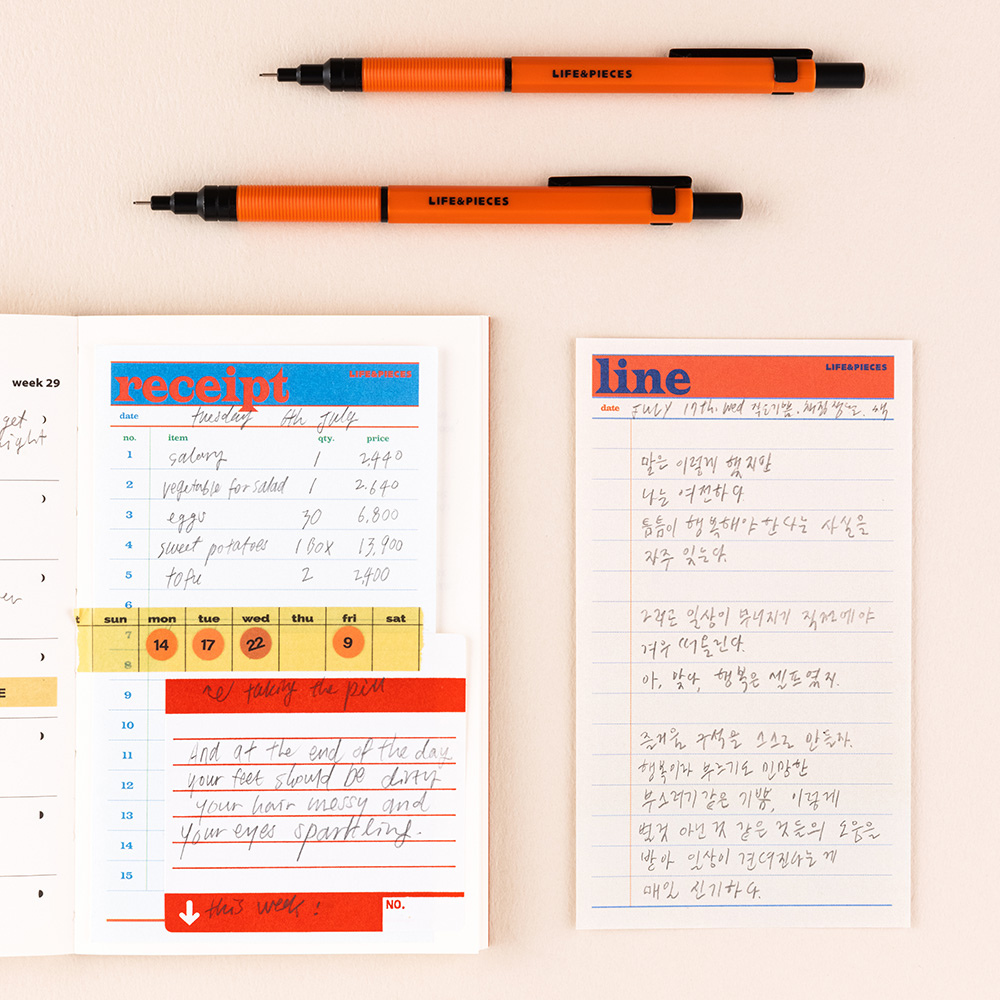 LIFE&PIECES
LIFE&PIECES
week 29
get
night
receipt
LIFE&PIECES
date tuesday 6th July
no. item qty. price
1 salary 1 2,440
2 vegetable for salad 1 2.640
3 eggs 30 6,800
4 sweet potatoes 1 BOX 13,900
5 tofu 2 2,400
6
t sun mon tue wed thu fri sat
7 14 17 22 9
8
9
taking the pill
10
11
12
13
14
15
And at the end of the day
your feet should be dirty
your hair messy and
your eyes sparkling.
this week!
NO.
E
line
LIFE&PIECES
date JULY 17th. wed
말은 이렇게 했지만
나는 여전하다.
틈틈이 행복해야 한다는 사실을
자주 잊는다.
그러곤 일상이 무너지기 직전에야
겨우 떠올린다.
아, 맞다, 행복은 셀프였지.
즐거울 구석을 스스로 만들라.
행복이라 부르기도 민망한
부스러기 같은 기쁨, 이렇게
별것 아닌 것 같은 것들의 도움을
받아 일상이 견뎌진다는 게
매일 신기하다.